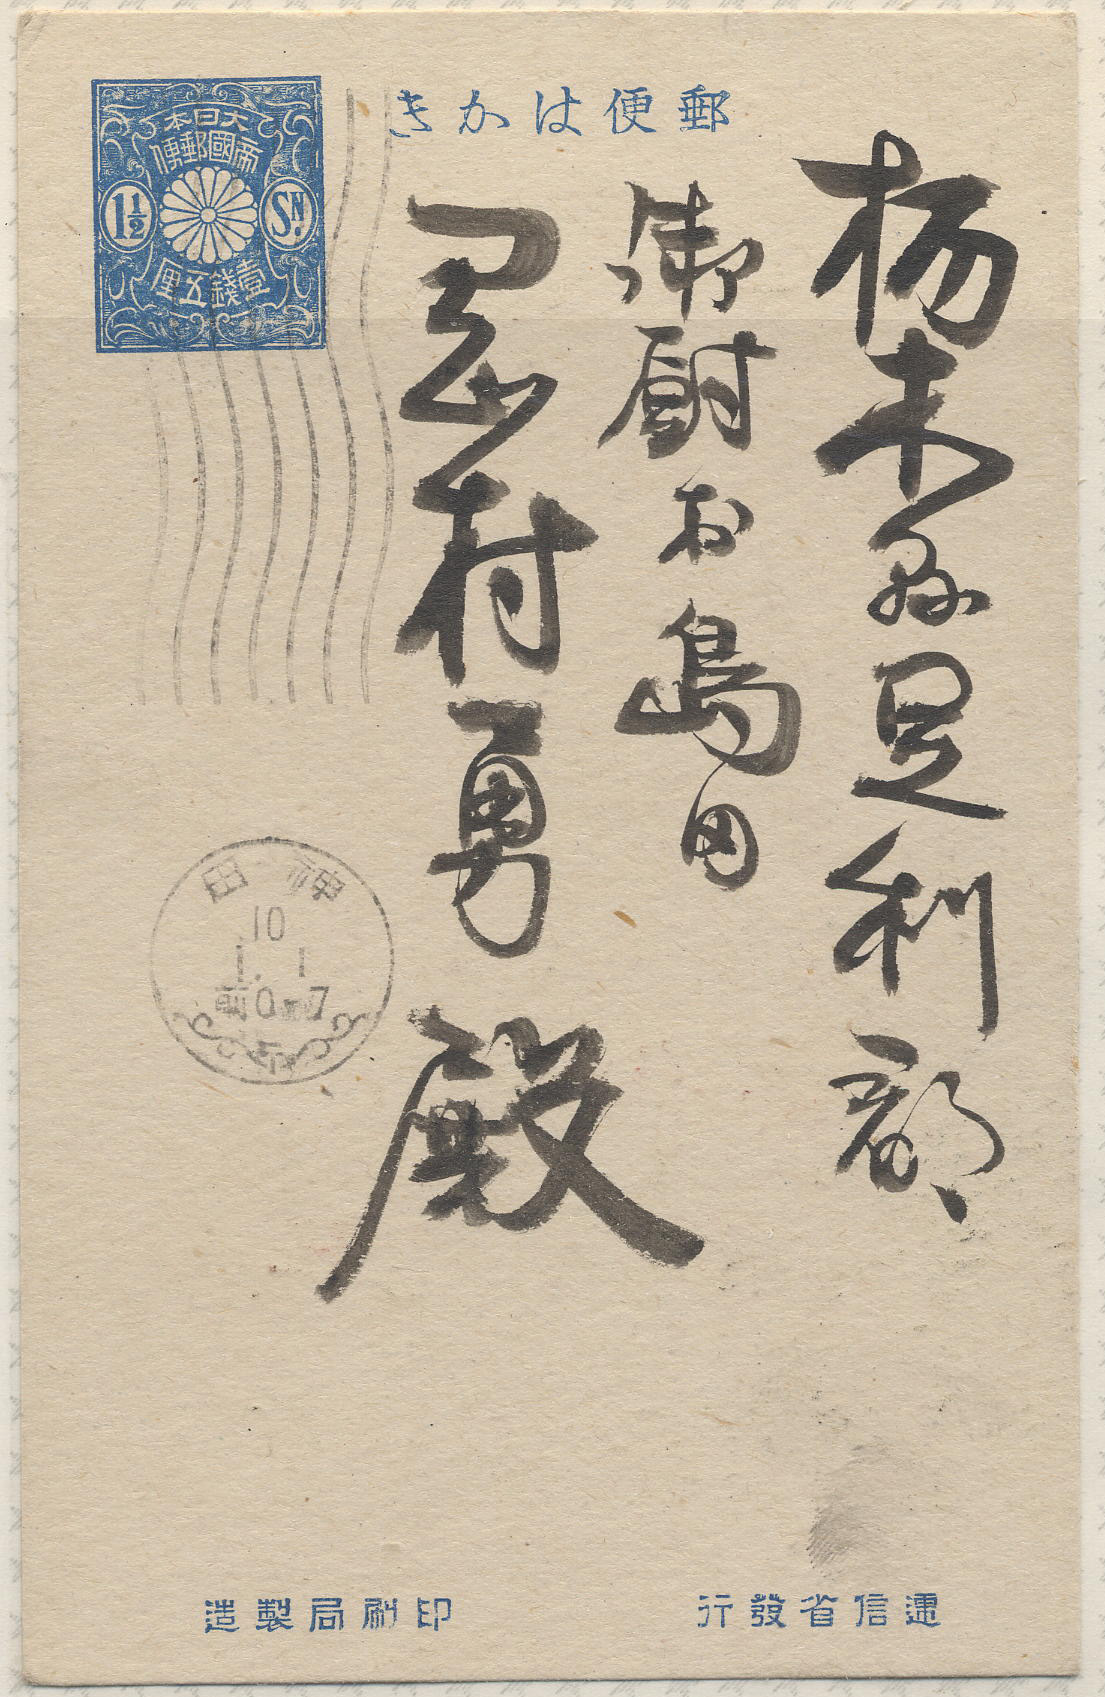 郵便はかき
大日本
帝國郵便
1½
SN.
壹錢五厘
栃木縣足利郡
御厨村島田
村勇殿
神田
10
1. 1
前0-7
遞信省發行
印刷局製造